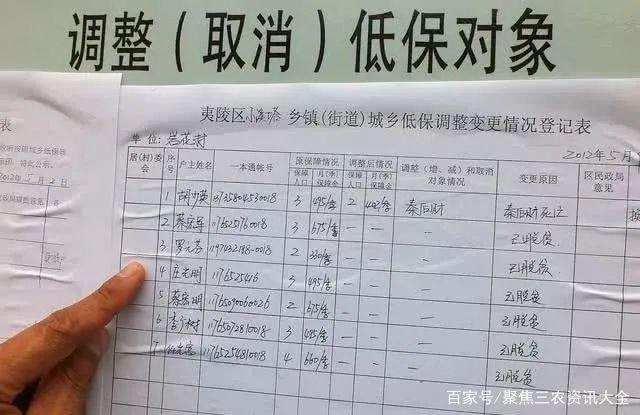 调整（取消）低保对象
夷陵区小溪塔乡镇(街道)城乡低保调整变更情况登记表
单位: 岩花村
2012年5月
居(村)委会 序号 户主姓名 一本通帐号 原保障情况 调整后情况 调整（增、减）和取消对象情况 变更原因 区民政局意见
保障人口 月(季)保障金 保障人口 月(季)保障金
1 3 495/季 2 秦后财 秦后财死亡
2 蔡宏军 11765251760018 3 675/季 — — — 已脱贫
3 1197432188-0018 2 330/季 — — — 已脱贫
4 庄光明 3 495/季 — — — 已脱贫
5 蔡宏明 2 675/季 — — — 已脱贫
6 11765072810018 3 495/季 — — — 已脱贫
7 11765254810018 4 660/季 — — — 已脱贫
表
2012年5月2日
百家号/聚焦三农资讯大全